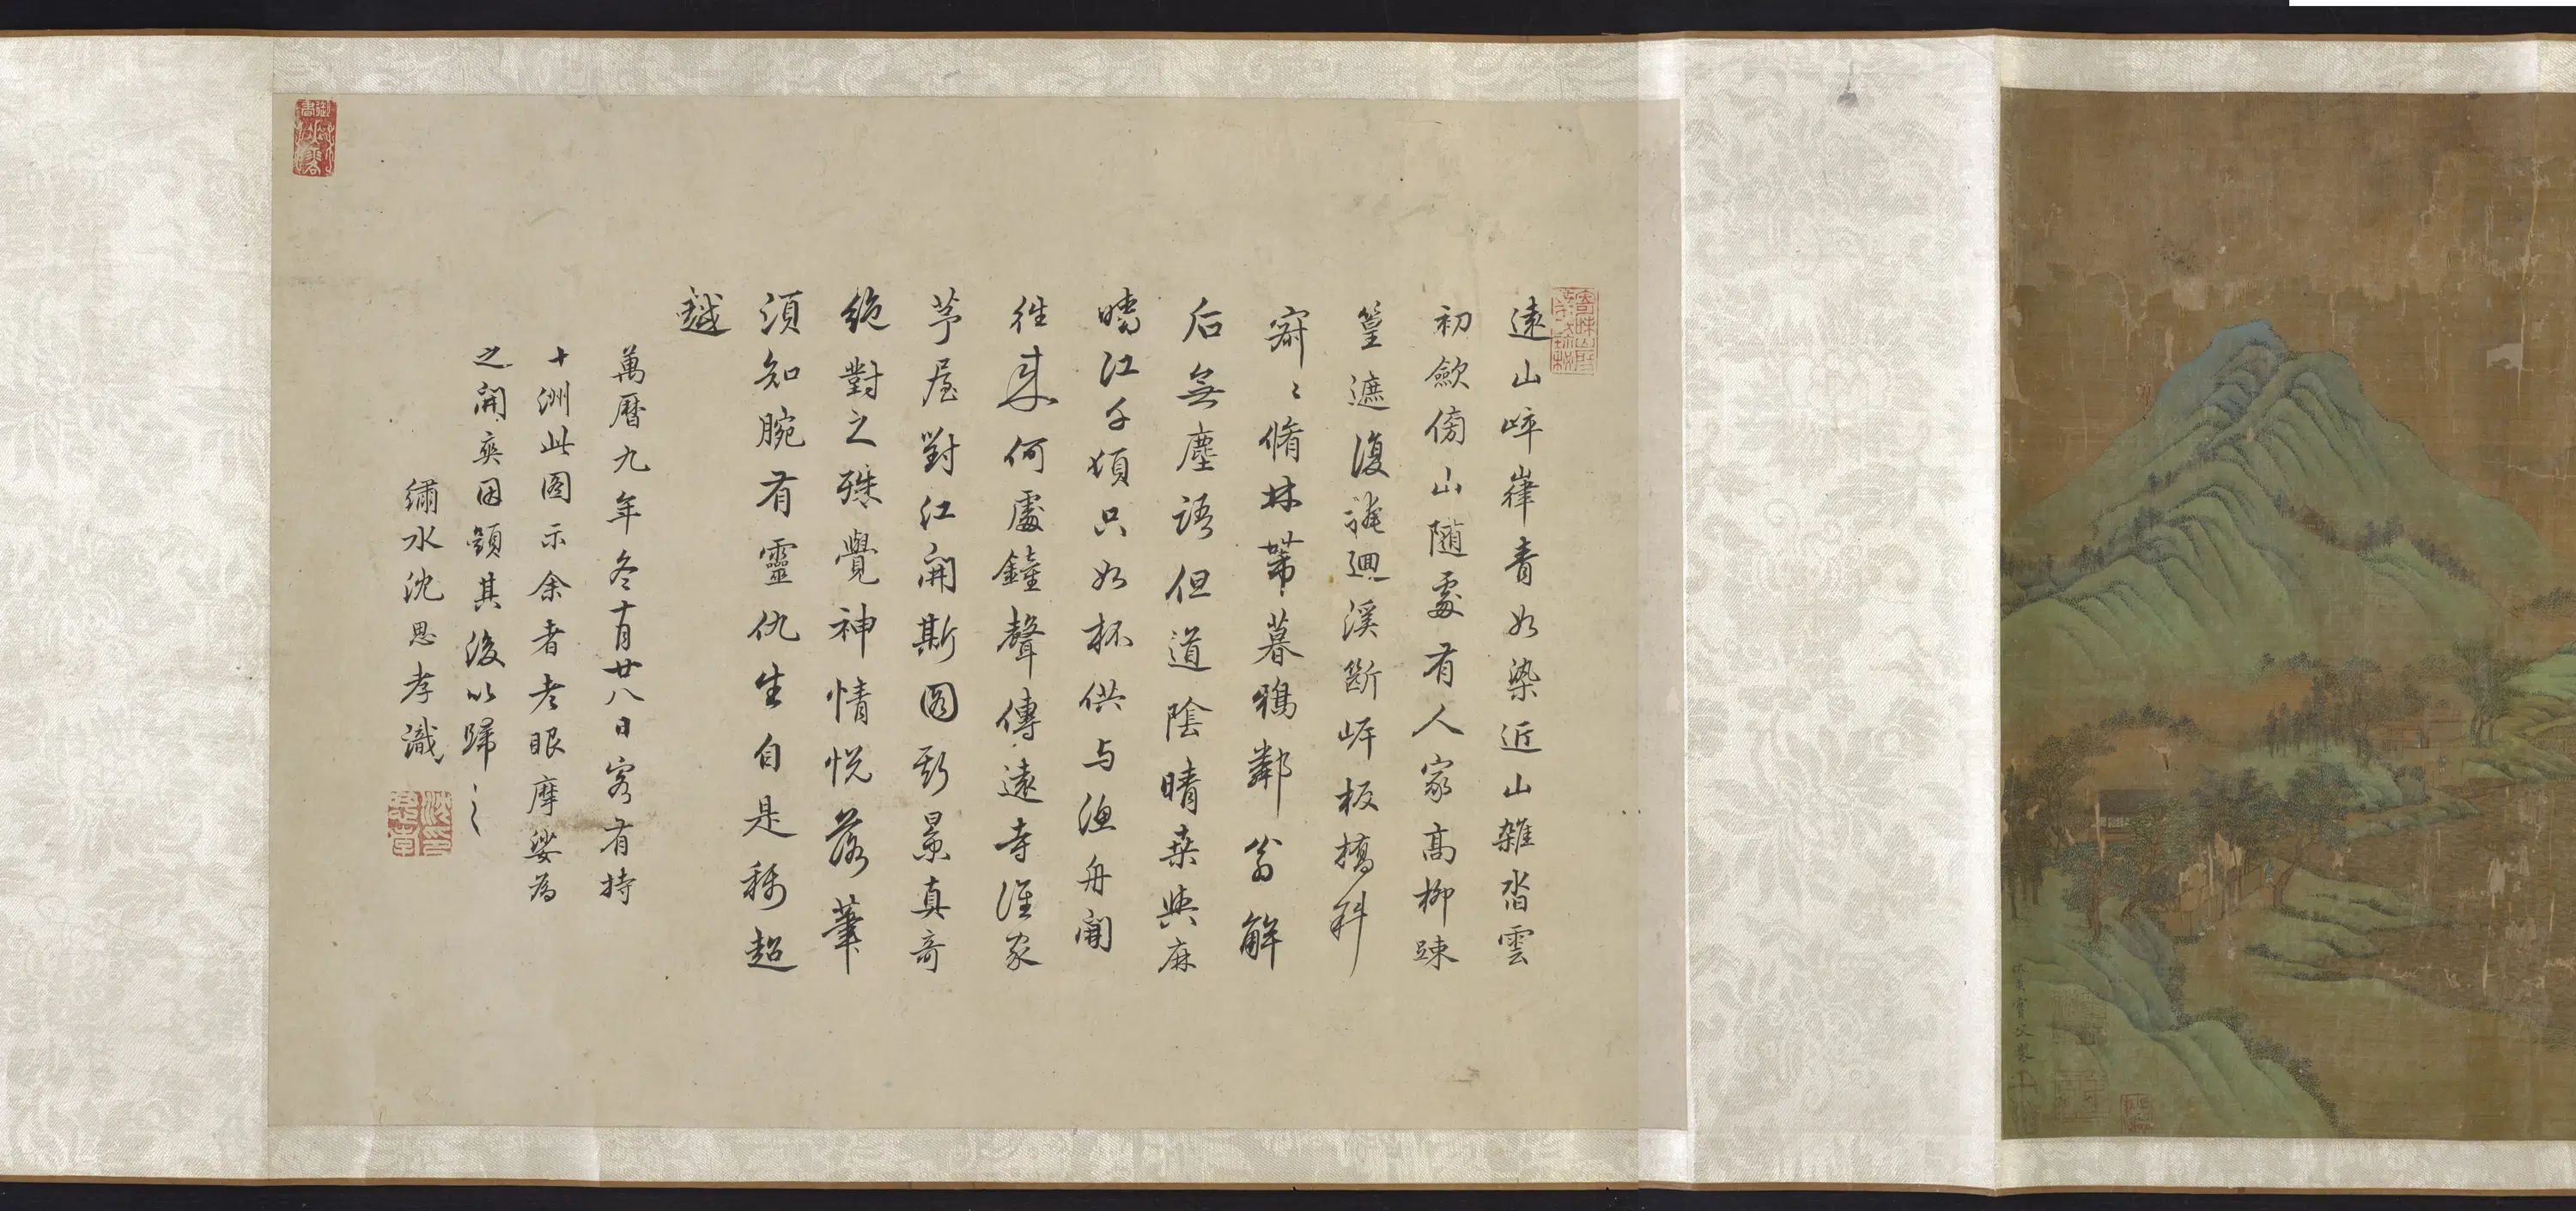 遠山崪嵂青如染近山雜沓雲
初歛傍山隨處有人家高柳踈
篁遮復掩迴溪斷岸板橋斜
寂〻脩林帶暮鴉鄰翁解
后無塵語但道陰晴桒與麻
晴江千頃只如杯供与漁舟閒
往來何處鐘聲傳遠寺誰家
茅屋對江開斯圖影景真奇
絶對之殊覺神情悦落筆
須知腕有靈仇生自是稱超
越
萬曆九年冬十月廿八日客有持
十洲此图示余者老眼摩娑為
之開爽因題其後以歸之
繡水沈思孝識
沈思孝印